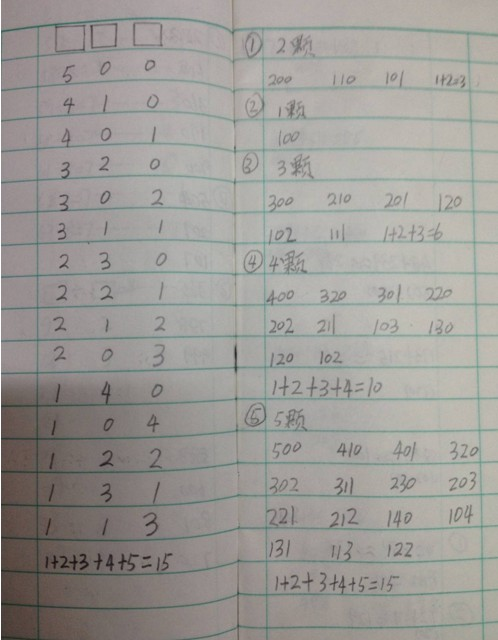 5 0 0
4 1 0
4 0 1
3 2 0
3 0 2
3 1 1
2 3 0
2 2 1
2 1 2
2 0 3
1 4 0
1 0 4
1 2 2
1 3 1
1 1 3
1+2+3+4+5=15
① 2颗
200 110 101 1+2=3
② 1颗
100
③ 3颗
300 210 201 120
102 111 1+2+3=6
④ 4颗
400 320 301 220
202 211 103 130
120 102
1+2+3+4=10
⑤ 5颗
500 410 401 320
302 311 230 203
221 212 140 104
131 113 122
1+2+3+4+5=15